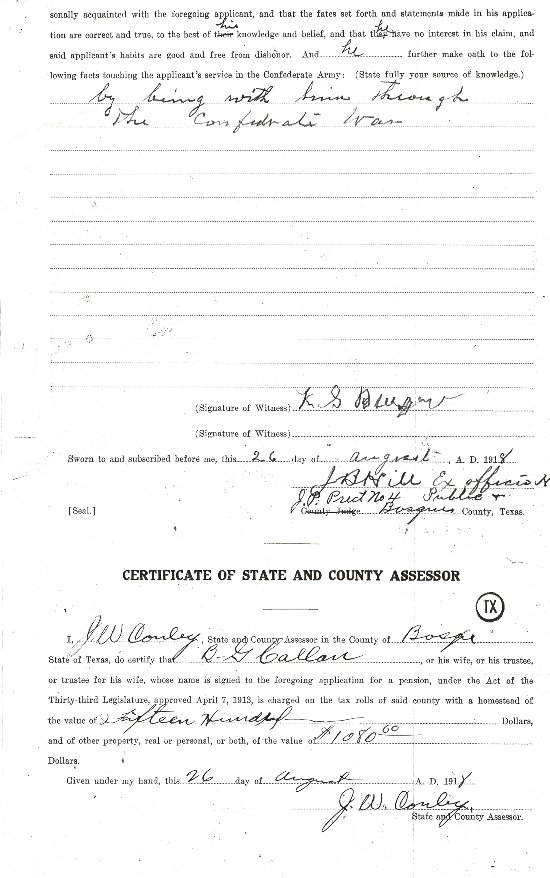 sonally acquainted with the foregoing applicant, and that the fates set forth and statements made in his applica-
tion are correct and true, to the best of their his knowledge and belief, and that they he have no interest in his claim, and
said applicant's habits are good and free from dishonor. And he further make oath to the fol-
lowing facts touching the applicant's service in the Confederate Army: (State fully your source of knowledge.)
by being with him through
the Confedrate War
(Signature of Witness) K S
(Signature of Witness)
Sworn to and subscribed before me, this 26 day of August, A. D. 1918
J B Hill Ex officio N
J.P. Prect No 4 Public +
[Seal.] County Judge Bosque County, Texas.
CERTIFICATE OF STATE AND COUNTY ASSESSOR
TX
I, J. W. Conley, State and County Assessor in the County of Bosque
State of Texas, do certify that B G Callan, or his wife, or his trustee,
or trustee for his wife, whose name is signed to the foregoing application for a pension, under the Act of the
Thirty-third Legislature, approved April 7, 1913, is charged on the tax rolls of said county with a homestead of
the value of Fifteen Hundred Dollars,
and of other property, real or personal, or both, of the value of $1080.00
Dollars.
Given under my hand, this 26 day of August A. D. 1918
J. W. Conley,
State and County Assessor.